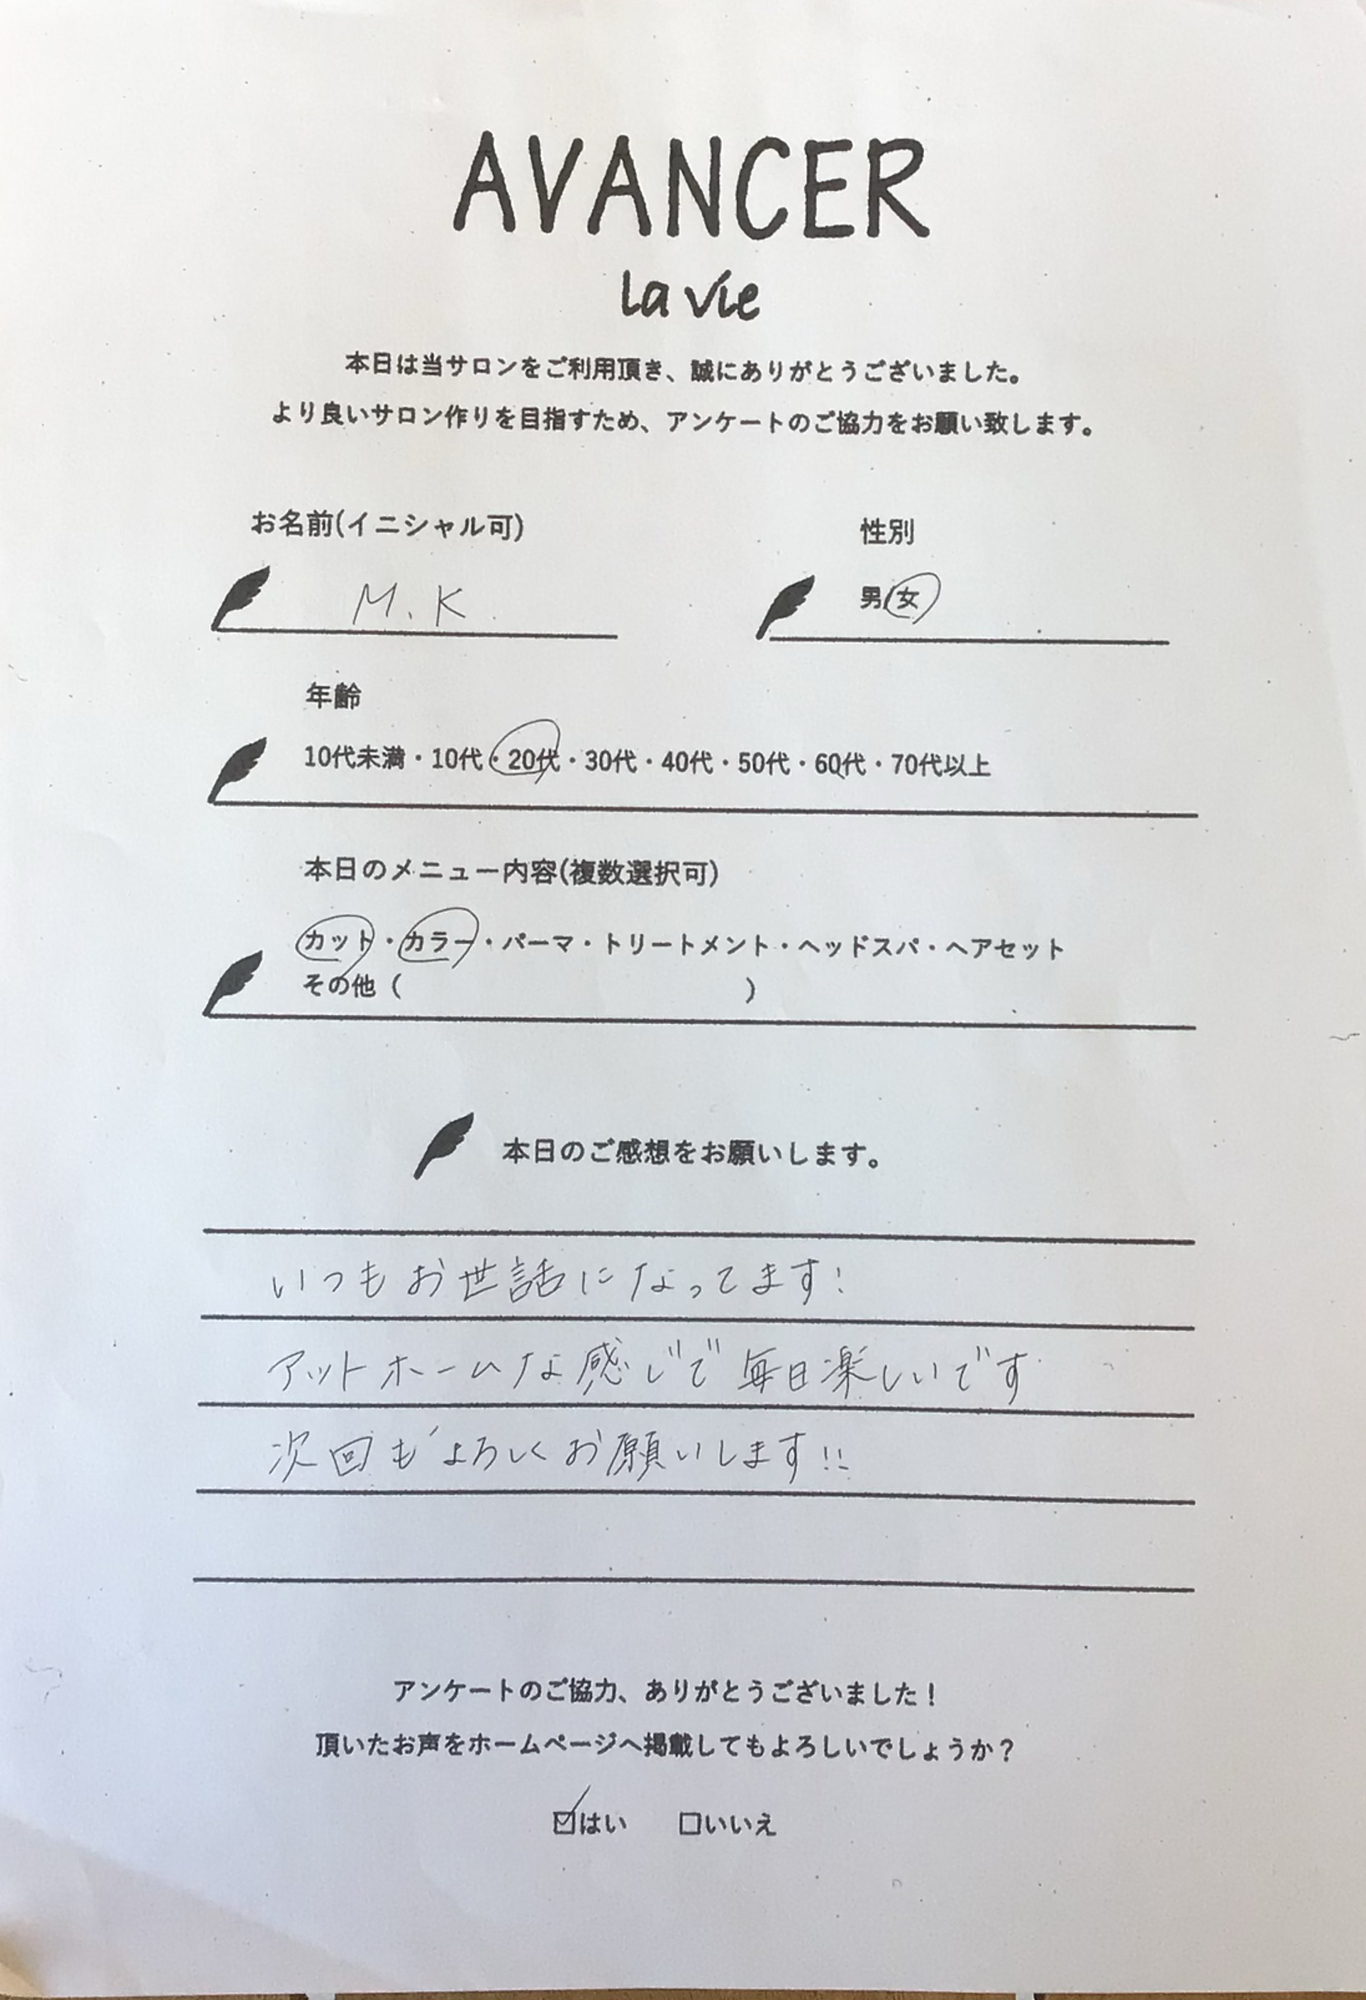 AVANCER
la vie
本日は当サロンをご利用頂き、誠にありがとうございました。
より良いサロン作りを目指すため、アンケートのご協力をお願い致します。
お名前(イニシャル可)
性別
M.K
男/女
年齢
10代未満・10代・20代・30代・40代・50代・60代・70代以上
本日のメニュー内容(複数選択可)
カット・カラー・パーマ・トリートメント・ヘッドスパ・ヘアセット
その他（ ）
本日のご感想をお願いします。
いつもお世話になってます!
アットホームな感じで毎日楽しいです
次回もよろしくお願いします!!
アンケートのご協力、ありがとうございました！
頂いたお声をホームページへ掲載してもよろしいでしょうか？
☑はい □いいえ